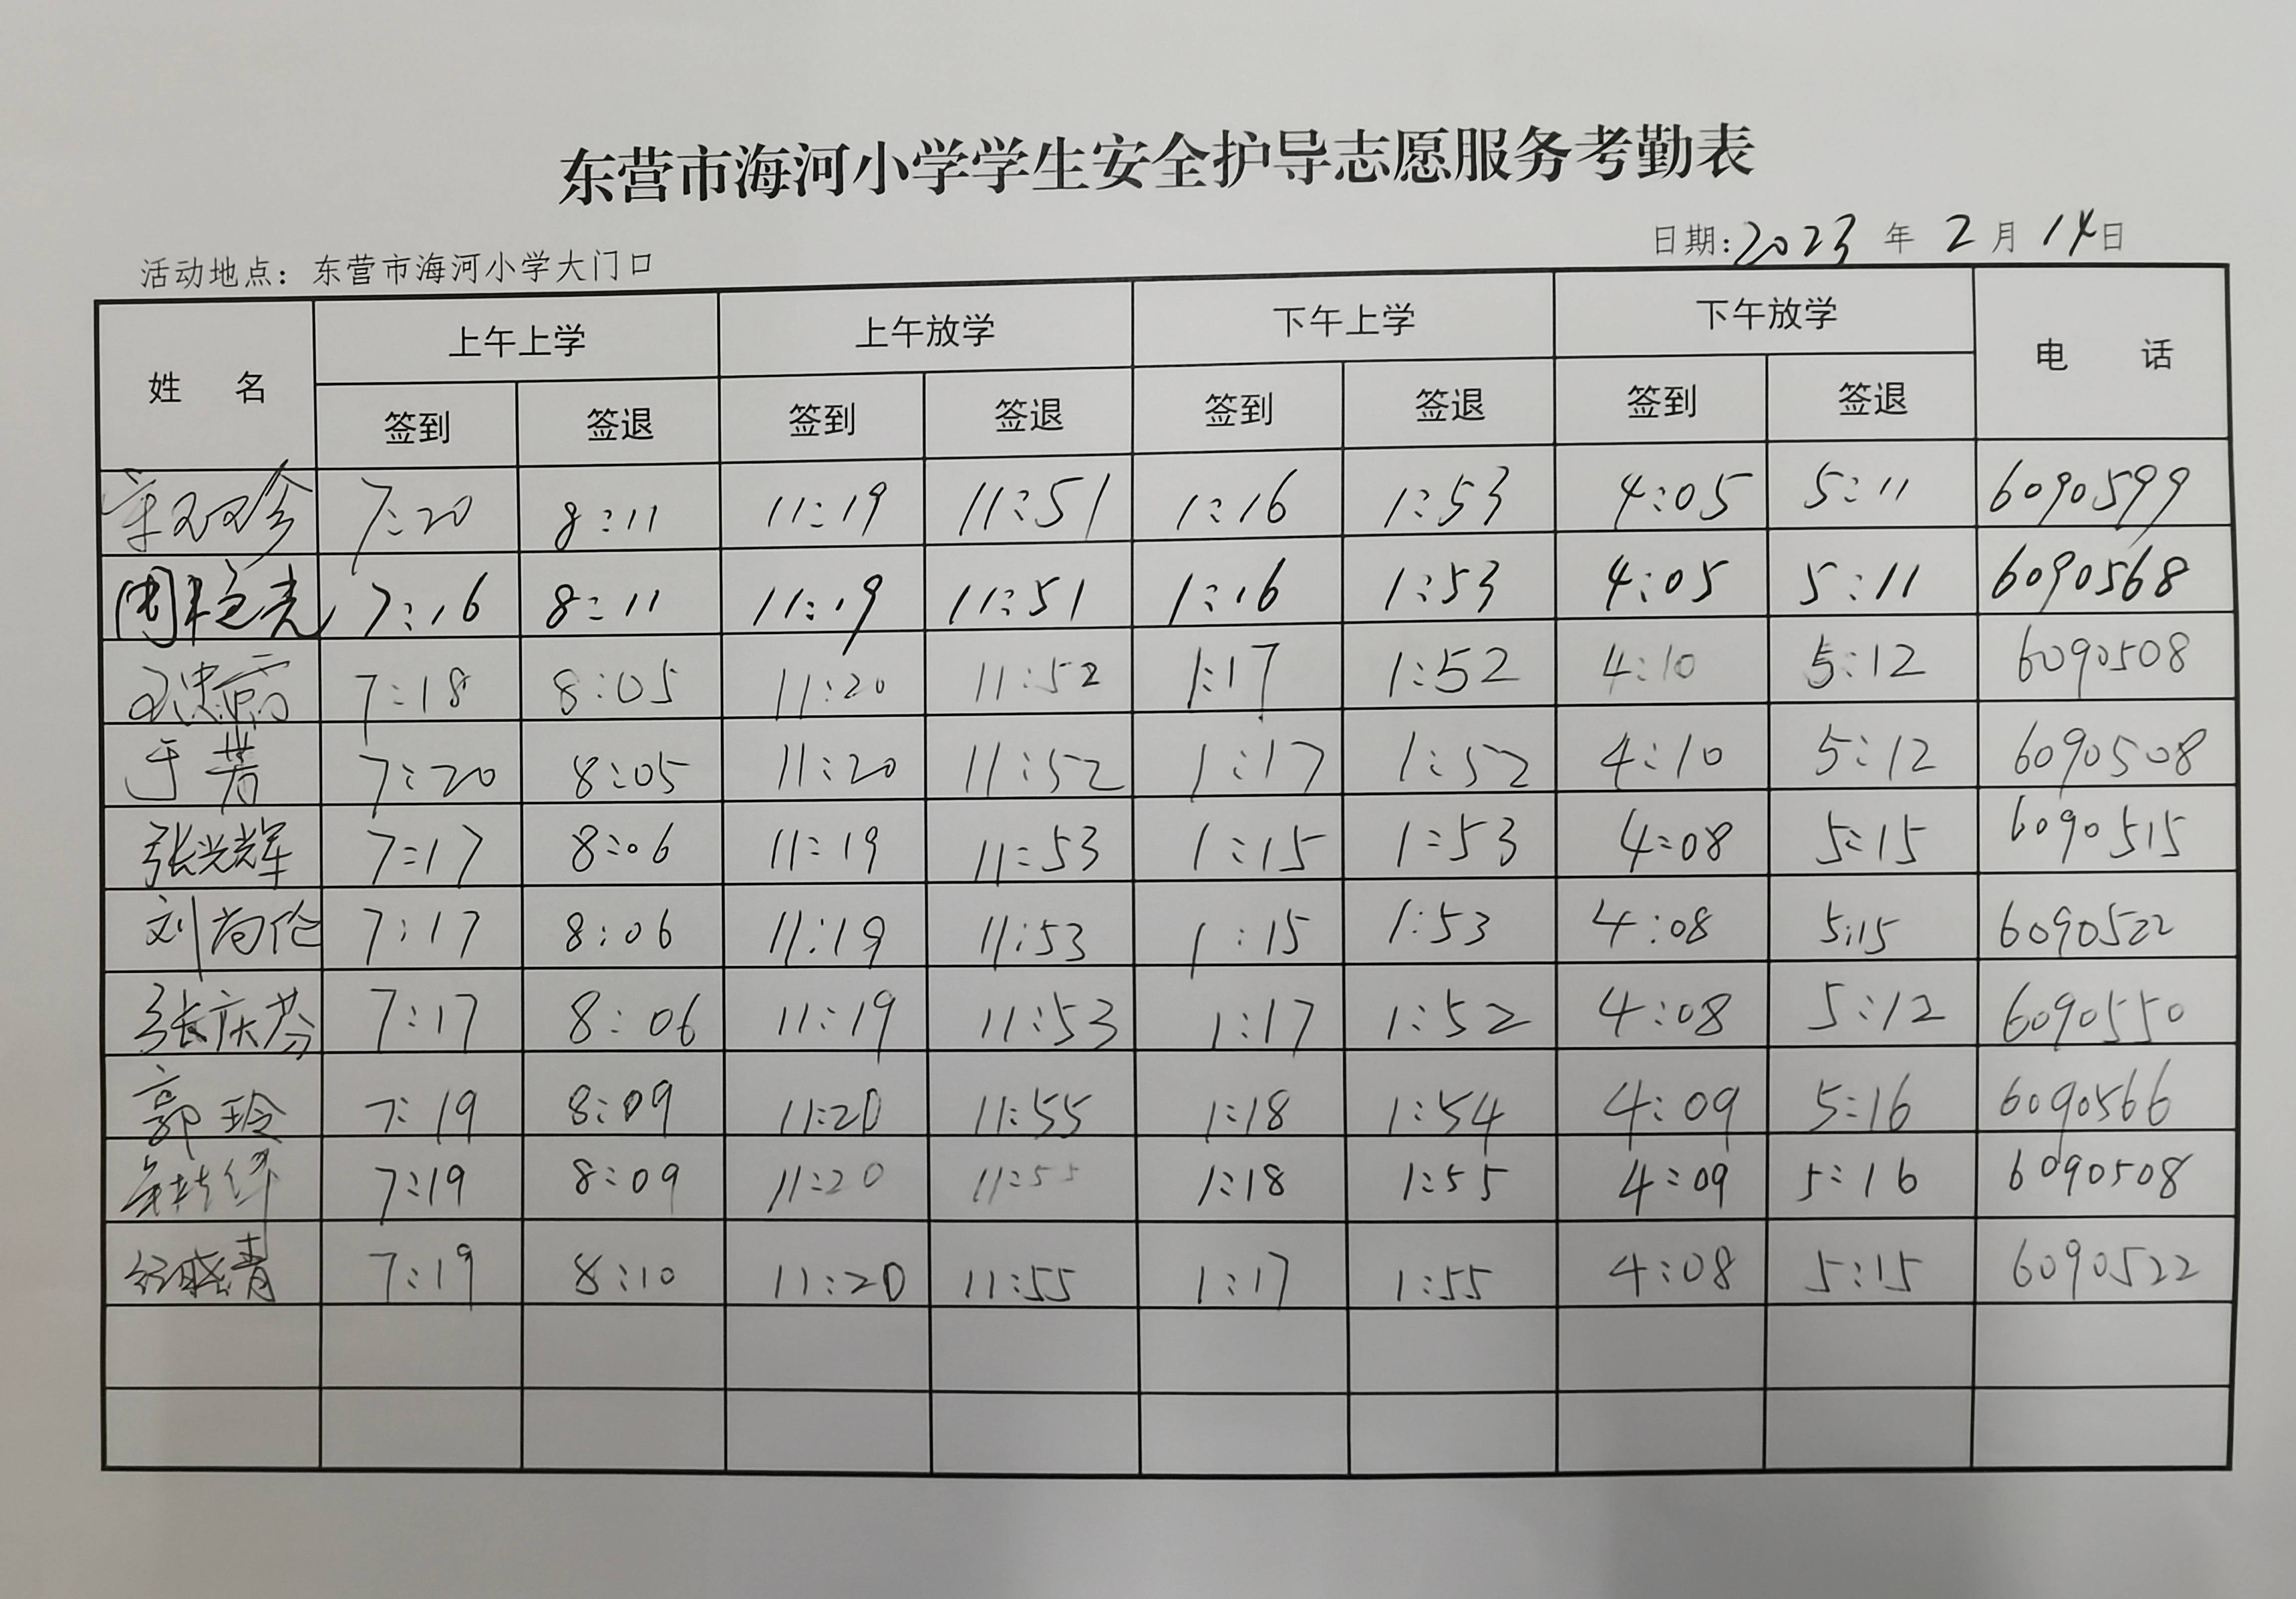 东营市海河小学学生安全护导志愿服务考勤表
日期:2023 年 2 月 14 日
活动地点：东营市海河小学大门口
姓 名 上午上学 上午放学 下午上学 下午放学 电 话
签到 签退 签到 签退 签到 签退 签到 签退
7:20 8:11 11:19 11:51 1:16 1:53 4:05 5:11 6090599
7:16 8:11 11:19 11:51 1:16 1:53 4:05 5:11 6090568
7:18 8:05 11:20 11:52 1:17 1:52 4:10 5:12 6090508
于芳 7:20 8:05 11:20 11:52 1:17 1:52 4:10 5:12 6090508
张兴辉 7:17 8:06 11:19 11:53 1:15 1:53 4:08 5:15 6090515
刘尚伦 7:17 8:06 11:19 11:53 1:15 1:53 4:08 5:15 6090522
张庆芬 7:17 8:06 11:19 11:53 1:17 1:52 4:08 5:12 6090550
郭玲 7:19 8:09 11:20 11:55 1:18 1:54 4:09 5:16 6090566
7:19 8:09 11:20 11:55 1:18 1:55 4:09 5:16 6090508
7:19 8:10 11:20 11:55 1:17 1:55 4:08 5:15 6090522